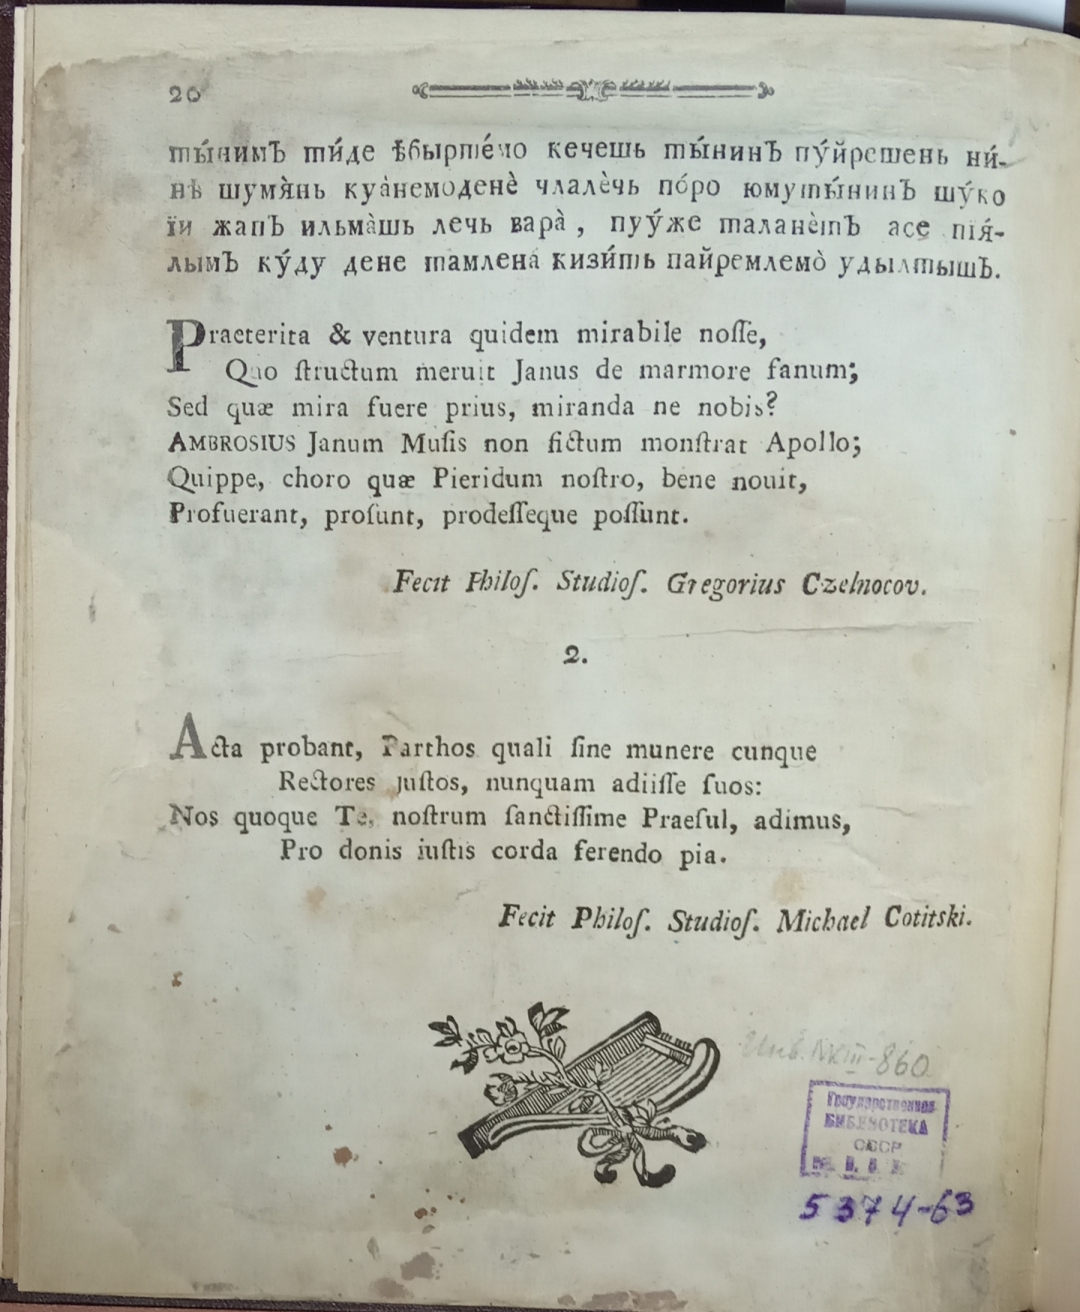 20
ты́нимЪ ти́де ѣбыртéмо кечешь ты́нинЪ пу́йрешень ни́-
нѣ шумя̀нь куàнемоденѐ члалѐчь пóро юмуты́нинЪ шу́ко
їи жапЪ ильмàшь лечь варà, пуу́же таланѐтЪ асе пія́-
лымЪ ку́ду дене тамлена́ кизи́ть пайремлемо̀ удылтышЪ.
Praeterita & ventura quidem mirabile noſſe,
Quo ſtructum meruit Janus de marmore fanum;
Sed quæ mira fuere prius, miranda ne nobis?
AMBROSIUS Janum Muſis non fictum monſtrat Apollo;
Quippe, choro quæ Pieridum noſtro, bene nouit,
Profuerant, proſunt, prodeſſeque poſſunt.
Fecit Philoſ. Studioſ. Gregorius Czelnocov.
2.
Acta probant, Parthos quali ſine munere cunque
Rectores juſtos, nunquam adiiſſe ſuos:
Nos quoque Te, noſtrum ſanctiſſime Praeſul, adimus,
Pro donis iuſtis corda ferendo pia.
Fecit Philoſ. Studioſ. Michael Cotitski.
Инв. №III-860
Государственная
БИБЛИОТЕКА
СССР
5374-63